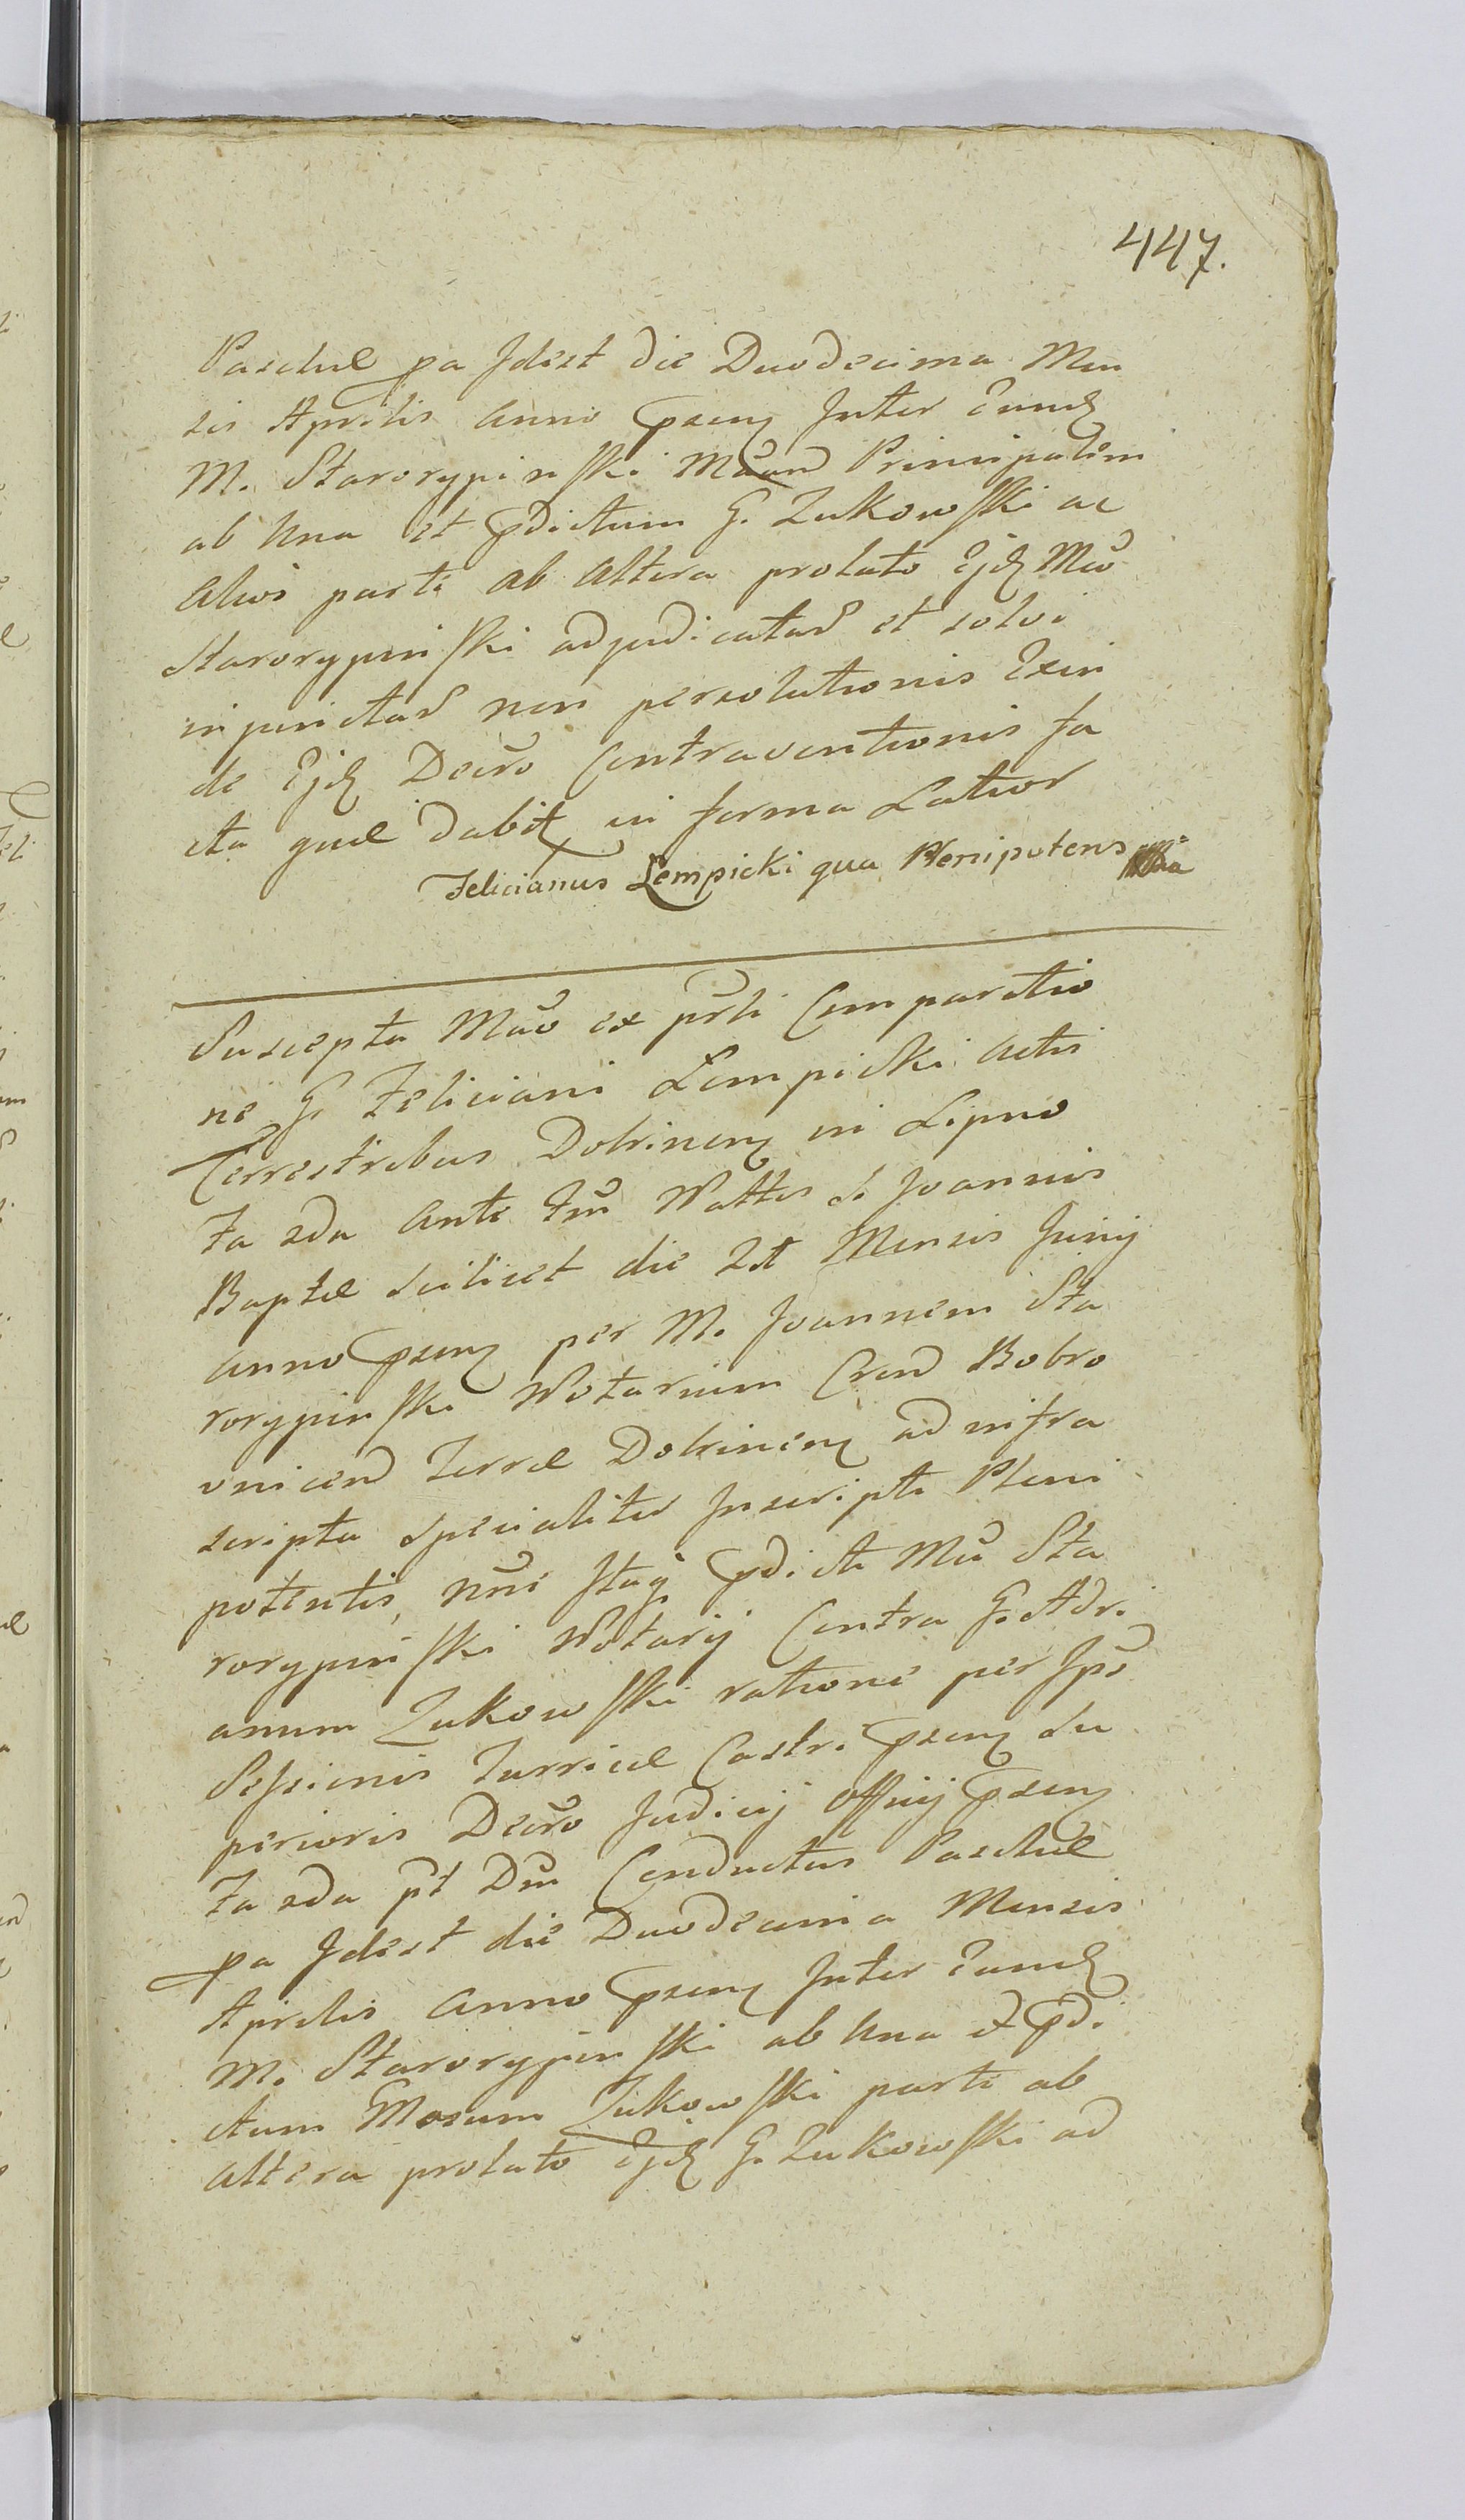 447.
Paschæ pa Idest die Duodecima Men
sis Aprilis anno præsen Inter Eund
M. Starorypinski Principalem
ab una et pdictum G. Zukowski ac
alios parte ab altera prolato Ejd Mco
Starorypinski adjudicatar et solvi
injunctar non persolutionis Exin
de Ejd Decro Contraventionis fa
cta quæ dabit in forma Latior
Felicianus Lempicki qua Plenipotens mpa
Suscepta Mao ex prli Comparitio
ne G. Feliciani Lempicki actis
Terrestribus Dobrinen in Lipno
Fa 2da ante Fm Nattis S. Joannis
Baptæ scilicet die 21 Mensis Junij
anno præsen per M. Joannem Sta
rorypinski Notarium Cren Bobro
vnicen Terræ Dobrinen ad infra
scripta specialiter Inscripti Pleni
potentis, nne Itaq pdicti Mci Sta
rorypinski Notarij Contra G. Adri
anum Zukowski ratione per Ipse
Sessionis Turricæ Castri præsen Su
perioris Decro Judicij Officij præsen
Fa 2da pt Dm Conductus Paschæ
pa Idest die Duodecima Mensis
Aprilis anno præsen Inter Eund
M. Starorypinski ab una et pdi
ctum Gnosum Zukowski parte ab
altera prolato Ejd G. Zukowski ad